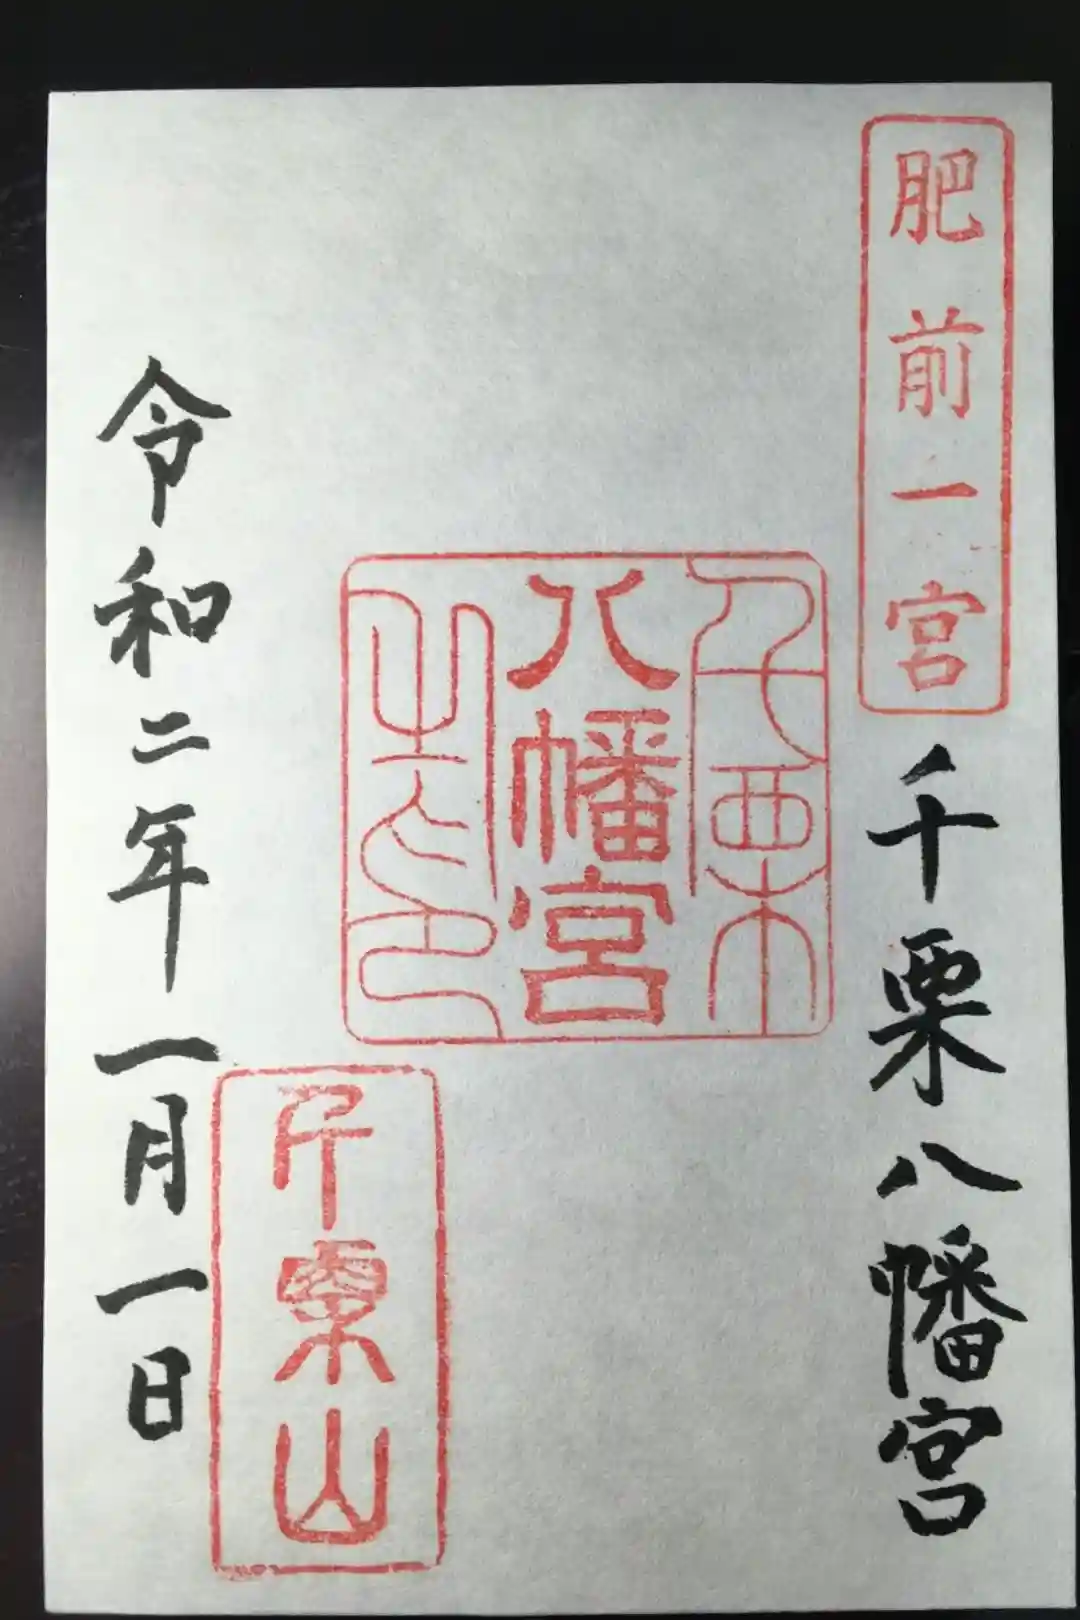 肥前一宮
千栗八幡宮
千栗
八幡宮
之印
千栗山
令和二年一月一日